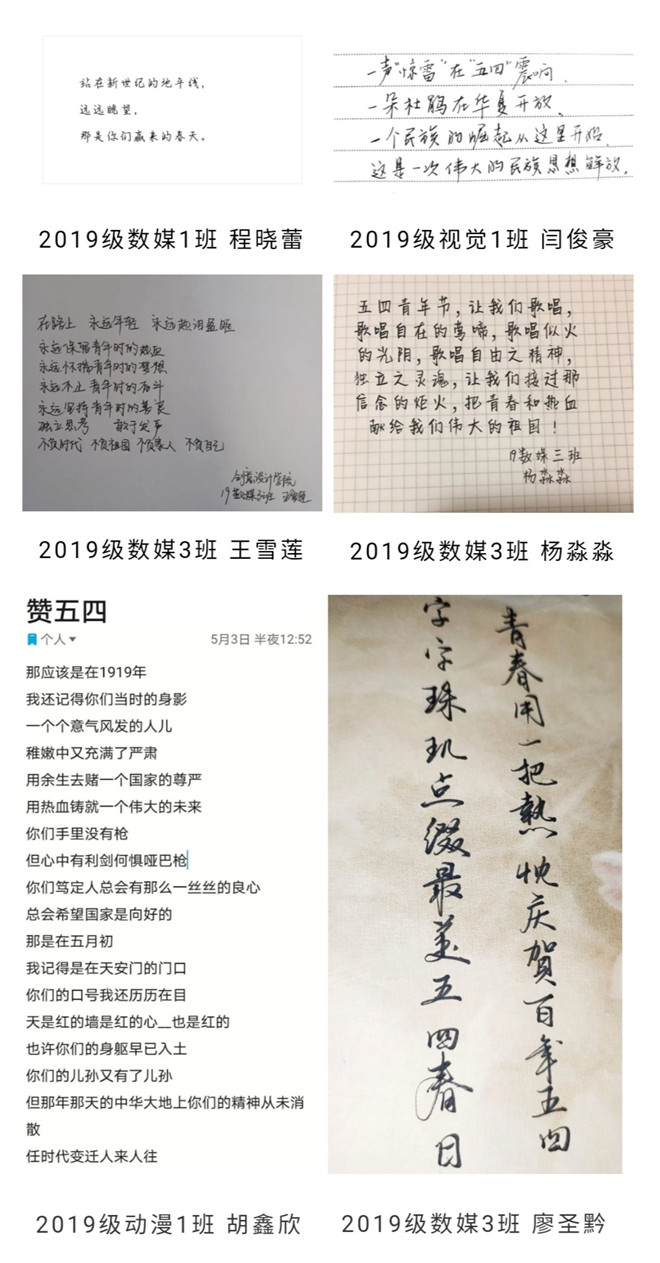 站在新世纪的地平线，
远远眺望，
那是你们赢来的春天。
一声"惊雷"在"五四"震响，
一朵杜鹃在华夏开放，
一个民族的崛起从这里开始，
这是一次伟大的民族思想解放。
2019级数媒1班 程晓蕾
2019级视觉1班 闫俊豪
在路上 永远年轻 永远热泪盈眶
永远保留青年时的热血
永远怀揣青年时的梦想
永远不止青年时的奋斗
永远坚持青年时的善良
独立思考 敢于发声
不负时代 不负祖国 不负家人 不负自己
创意设计学院
19数媒3班 王雪莲
五四青年节，让我们歌唱，
歌唱自在的莺啼，歌唱似火
的光阴，歌唱自由之精神，
独立之灵魂，让我们接过那
信念的炬火，把青春和热血
献给我们伟大的祖国！
19数媒三班
杨淼淼
2019级数媒3班 王雪莲
2019级数媒3班 杨淼淼
赞五四
个人
5月3日 半夜12:52
那应该是在1919年
我还记得你们当时的身影
一个个意气风发的人儿
稚嫩中又充满了严肃
用余生去赌一个国家的尊严
用热血铸就一个伟大的未来
你们手里没有枪
但心中有利剑何惧哑巴枪
你们笃定人总会有那么一丝丝的良心
总会希望国家是向好的
那是在五月初
我记得是在天安门的门口
你们的口号我还历历在目
天是红的墙是红的心__也是红的
也许你们的身躯早已入土
你们的儿孙又有了儿孙
但那年那天的中华大地上你们的精神从未消
散
任时代变迁人来人往
青春用一把热忱庆贺百年五四
字字珠玑点缀最美五四春日
2019级动漫1班 胡鑫欣
2019级数媒3班 廖圣黔